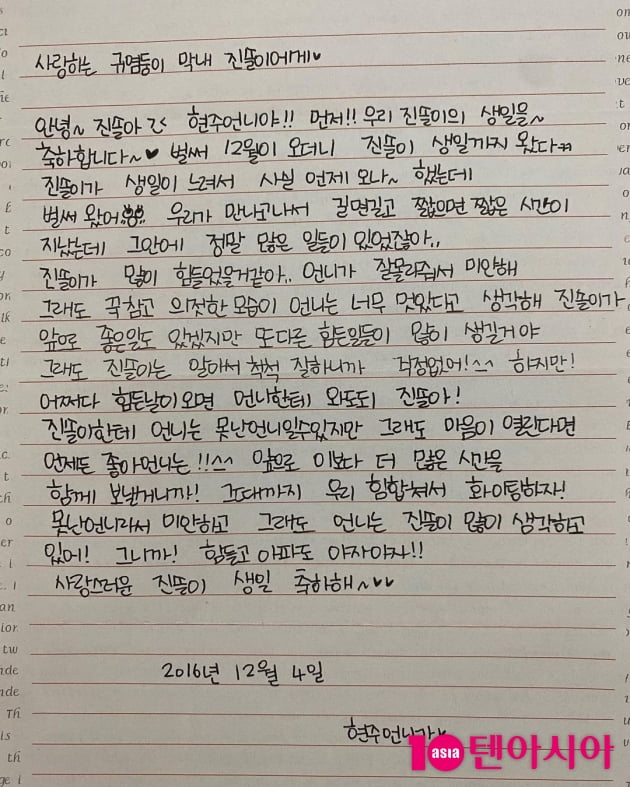 사랑하는 귀염둥이 막내 진뜰이에게♥
안녕~ 진뜰아 현주언니야!! 먼저!! 우리 진뜰이의 생일을~
축하합니다~♥ 벌써 12월이 오더니 진뜰이 생일까지 왔다ㅋㅋ
진뜰이가 생일이 느려서 사실 언제 오나~ 했는데
벌써 왔어 우리가 만나고나서 길면길고 짧으면 짧은 시간이
지났는데 그안에 정말 많은 일들이 있었잖아..
진뜰이가 많이 힘들었을거같아.. 언니가 잘몰라줘서 미안해
그래도 꾹참고 의젓한 모습이 언니는 너무 멋있다고 생각해 진뜰이가
앞으로 좋은일도 있겠지만 또다른 힘든일들이 많이 생길거야
그래도 진뜰이는 알아서 척척 잘하니까 걱정없어!^^ 하지만!
어쩌다 힘든날이오면 언니한테 와도돼 진뜰아!
진뜰이한테 언니는 못난언니일수있지만 그래도 마음이 열린다면
언제든 좋아언니는!!^^ 앞으로 이보다 더 많은 시간을
함께 보낼거니까! 그때까지 우리 힘합쳐서 화이팅하자!
못난언니라서 미안하고 그래도 언니는 진뜰이 많이 생각하고
있어! 그니까! 힘들고 아파도 아자아자!!
사랑스러운 진뜰이 생일 축하해~♥♥
2016년 12월 4일
현주언니가♥
10asia 텐아시아